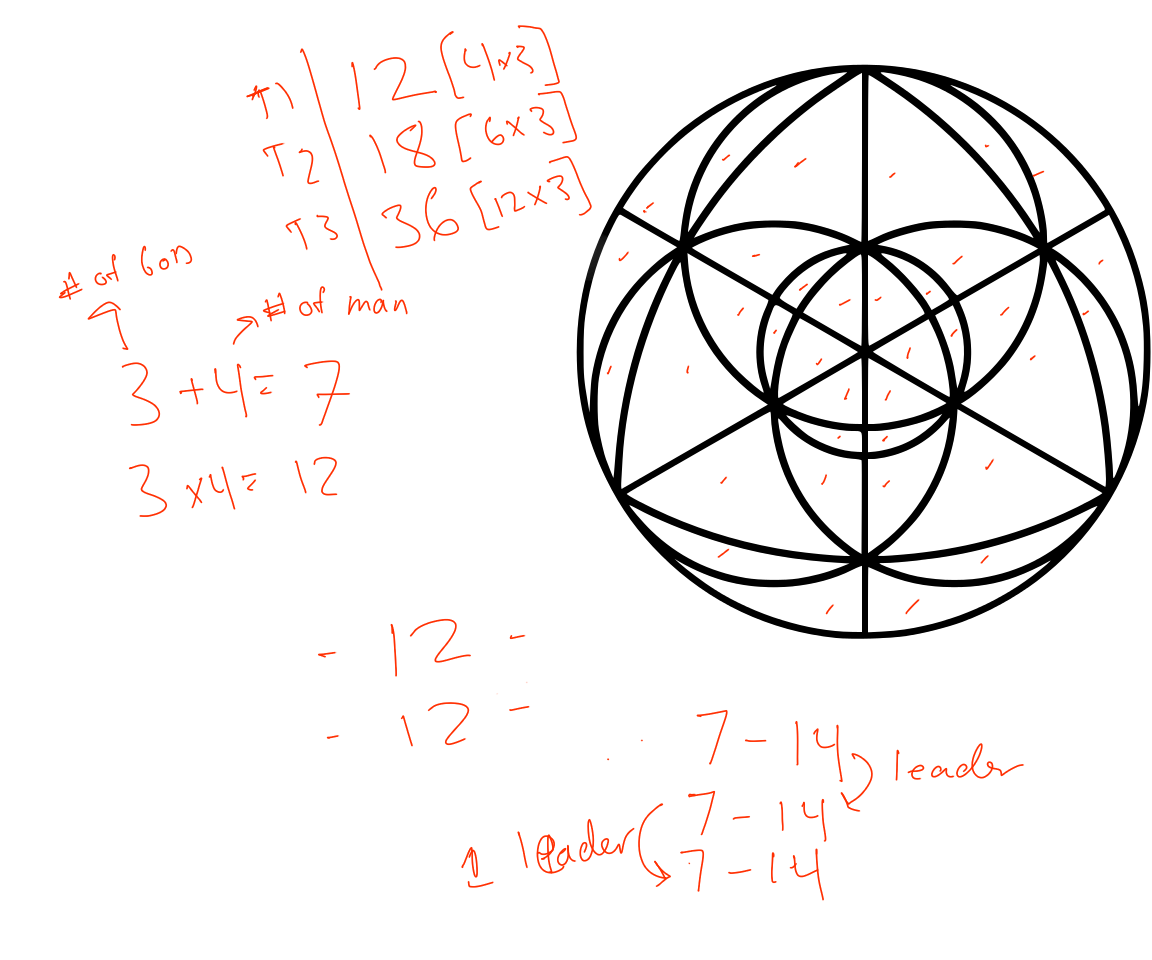 T1 12 [4x3]
T2 18 [6x3]
T3 36 [12x3]
# of
# of man
3 + 4 = 7
3 x 4 = 12
- 12 -
- 12 -
7 - 14
leader
7 - 14
1 leader
7 - 14